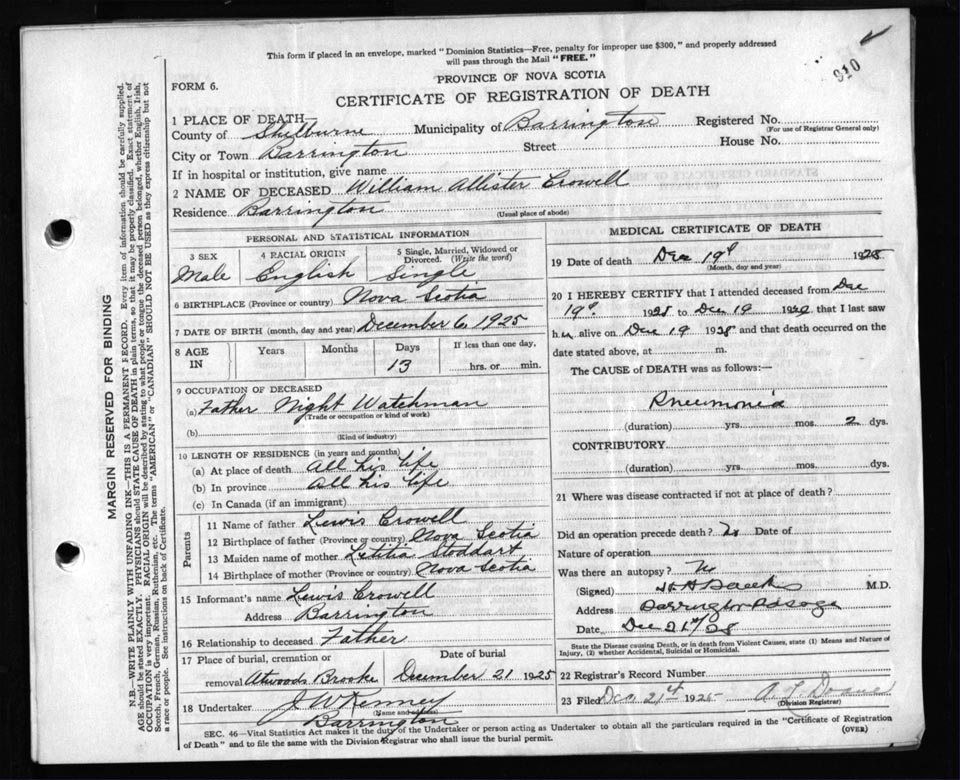 This form if placed in an envelope, marked "Dominion Statistics—Free, penalty for improper use $300," and properly addressed
will pass through the Mail "FREE."
910
PROVINCE OF NOVA SCOTIA
FORM 6.
CERTIFICATE OF REGISTRATION OF DEATH
1 PLACE OF DEATH
County of Shelburne Municipality of Barrington Registered No.
(For use of Registrar General only)
City or Town Barrington Street House No.
If in hospital or institution, give name
2 NAME OF DECEASED William Allister Crowell
Residence Barrington
(Usual place of abode)
PERSONAL AND STATISTICAL INFORMATION
3 SEX 4 RACIAL ORIGIN 5 Single, Married, Widowed or
Divorced. (Write the word)
Male English Single
6 BIRTHPLACE (Province or country) Nova Scotia
7 DATE OF BIRTH (month, day and year) December 6, 1925
8 AGE IN Years Months Days If less than one day,
13 hrs. or min.
9 OCCUPATION OF DECEASED
(a) Father Night Watchman
(Trade or occupation or kind of work)
(b)
(Kind of industry)
10 LENGTH OF RESIDENCE (in years and months)
(a) At place of death All his life
(b) In province All his life
(c) In Canada (if an immigrant)
Parents
11 Name of father Lewis Crowell
12 Birthplace of father (Province or country) Nova Scotia
13 Maiden name of mother Letitia Stoddart
14 Birthplace of mother (Province or country) Nova Scotia
15 Informant's name Lewis Crowell
Address Barrington
16 Relationship to deceased Father
17 Place of burial, cremation or Date of burial
removal Atwoods Brooke December 21 1925
18 Undertaker J W Kenney
(Name and address)
Barrington
MEDICAL CERTIFICATE OF DEATH
19 Date of death Dec 19th 1925
(Month, day and year)
20 I HEREBY CERTIFY that I attended deceased from Dec
19th 1925 to Dec 19 that I last saw
alive on Dec 19 and that death occurred on the
date stated above, at m.
The CAUSE of DEATH was as follows:—
Pneumonia
(duration) yrs. mos. 2 dys.
CONTRIBUTORY
(duration) yrs. mos. dys.
21 Where was disease contracted if not at place of death?
Did an operation precede death? No Date of
Nature of operation
Was there an autopsy? No
(Signed) M.D.
Address Barrington Passage
Date Dec 21st/25
State the Disease causing Death, or in death from Violent Causes, state (1) Means and Nature of
Injury, (2) whether Accidental, Suicidal or Homicidal.
22 Registrar's Record Number
23 Filed Dec 21st 1925
(Division Registrar)
SEC. 46—Vital Statistics Act makes it the duty of the Undertaker or person acting as Undertaker to obtain all the particulars required in the "Certificate of Registration
of Death" and to file the same with the Division Registrar who shall issue the burial permit.
(OVER)
MARGIN RESERVED FOR BINDING
N.B.—WRITE PLAINLY WITH UNFADING INK—THIS IS A PERMANENT RECORD. Every item of information should be carefully supplied.
AGE should be stated EXACTLY. PHYSICIANS should STATE CAUSE OF DEATH in plain terms, so that it may be properly classified. Exact statement of
OCCUPATION is very important. RACIAL ORIGIN will be described by stating to what people or tongue the deceased person belonged, whether English, Irish,
Scotch, French, German, Russian, Ruthenian, etc. The terms "AMERICAN" or "CANADIAN" SHOULD NOT BE USED as they express citizenship but not
a race or people. See instructions on back of Certificate.